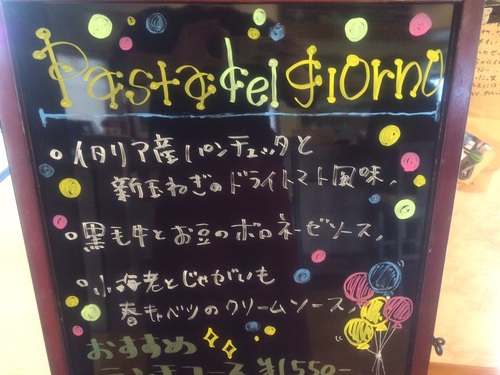 Pasta del giorno
。イタリア産パンチェッタと
新玉ねぎのドライトマト風味、
。黒毛牛とお豆のボロネーゼソース、
。小海老とじゃがいも
春キャベツのクリームソース、
おすすめ
ランチコース ¥1550-